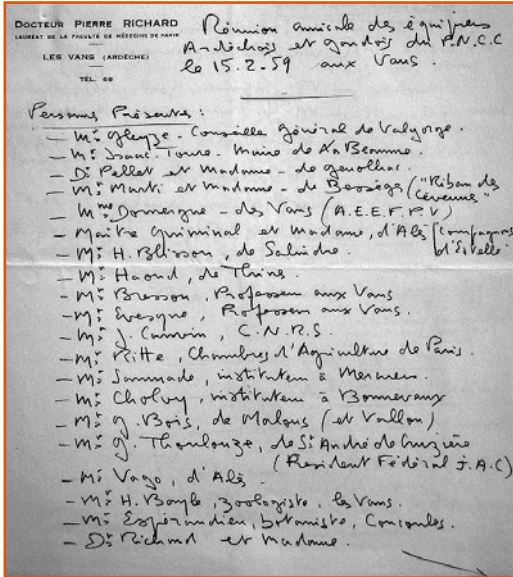 DOCTEUR PIERRE RICHARD
LAURÉAT DE LA FACULTÉ DE MÉDECINE DE PARIS
LES VANS (ARDÈCHE)
TÉL. 69
Réunion amicale des équipiers
Ardéchois et gardois du P.N.C.C
le 15.2.59 aux Vans.
Personnes Présentes :
— Mr Gleyze. Conseiller Général de Valgorge.
— Mr Isaac. Toure. Maire de La Beaume.
— Dr Pellet et Madame - de genolhac.
— Mr Manti et Madame - de Bessèges ("Riban des Cévennes"
— Mme Domergue - des Vans (A.E.E.F.P.V)
— Maître Guiminal et Madame, d'Alès (Compagnons d'Estelle
— Mr H. Blisson, de Salindre.
— Mr Haond, de Thines.
— Mr Bresson, Professeur aux Vans
— Mr Evesque, Professeur aux Vans.
— Mr J. Cauvin, C.N.R.S.
— Mr Ritte, Chambres d'Agriculture de Paris.
— Mr Sammade, instituteur à
— Mr Cholvy, instituteur à Bonnevaux
— Mr g. Bois, de Malons (et Vallon)
— Mr g. Thoulouze, de St André de Cruzière
(Président Fédéral J.A.C)
— Mr Vago, d'Alès.
— Mr H. Boyle, zoologiste, les Vans.
— Mr Espérandieu, botaniste, Concoules.
— Dr Richard et Madame.